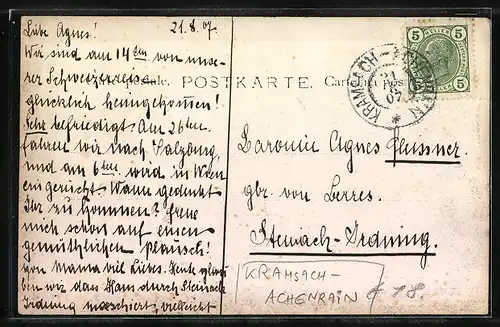 Liebe Agnes! 21.8.07.
Wir sind am 14ten von unse-
rer Schweizerreise
glücklich heimgekommen!
Sehr befriedigt. Am 26ten
fahren wir nach Salzburg,
und am 6ten wird in Wien
eingerückt. Wann gedenkt
Ihr zu kommen? Freue
mich schon auf einen
gemütlichen Plausch!
Von Mama viel Liebes. Heute
ben wir dass Hans durch Steinach
Irdning marschiert, vielleicht
POSTKARTE.
5 5
HELLER
5 5
KRAMSACH-ACHENRAIN
21
07
*
Baronin Agnes
gbr. von Berres.
Steinach-Irdning.
KRAMSACH-
ACHENRAIN € 18.